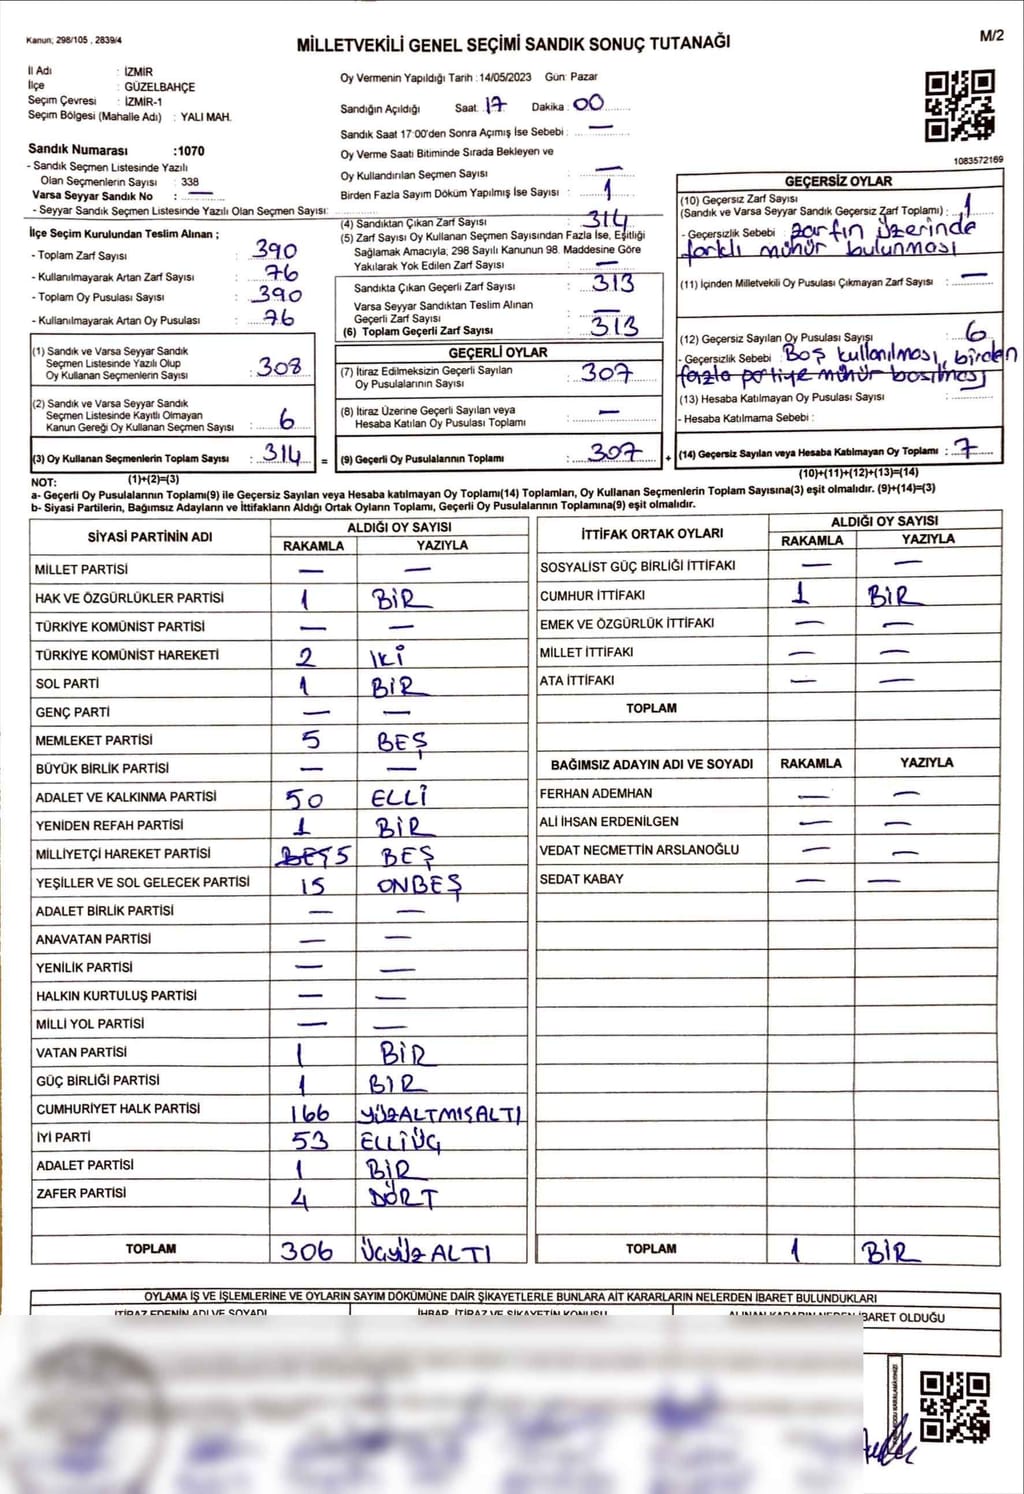 Kanun; 298/105 , 2839/4
MİLLETVEKİLİ GENEL SEÇİMİ SANDIK SONUÇ TUTANAĞI
M/2
İl Adı : İZMİR
İlçe : GÜZELBAHÇE
Seçim Çevresi : İZMİR-1
Seçim Bölgesi (Mahalle Adı) : YALI MAH.
Sandık Numarası :1070
- Sandık Seçmen Listesinde Yazılı
Olan Seçmenlerin Sayısı : 338
Varsa Seyyar Sandık No : —
- Seyyar Sandık Seçmen Listesinde Yazılı Olan Seçmen Sayısı:
İlçe Seçim Kurulundan Teslim Alınan ;
- Toplam Zarf Sayısı : 390
- Kullanılmayarak Artan Zarf Sayısı : 76
- Toplam Oy Pusulası Sayısı : 390
- Kullanılmayarak Artan Oy Pusulası : 76
(1) Sandık ve Varsa Seyyar Sandık
Seçmen Listesinde Yazılı Olup
Oy Kullanan Seçmenlerin Sayısı : 308
(2) Sandık ve Varsa Seyyar Sandık
Seçmen Listesinde Kayıtlı Olmayan
Kanun Gereği Oy Kullanan Seçmen Sayısı : 6
(3) Oy Kullanan Seçmenlerin Toplam Sayısı : 314
Oy Vermenin Yapıldığı Tarih : 14/05/2023 Gün: Pazar
Sandığın Açıldığı Saat: 17 Dakika : 00
Sandık Saat 17:00'den Sonra Açımış İse Sebebi : —
Oy Verme Saati Bitiminde Sırada Bekleyen ve
Oy Kullandırılan Seçmen Sayısı : —
Birden Fazla Sayım Döküm Yapılmış İse Sayısı : 1
(4) Sandıktan Çıkan Zarf Sayısı : 314
(5) Zarf Sayısı Oy Kullanan Seçmen Sayısından Fazla İse, Eşitliği
Sağlamak Amacıyla, 298 Sayılı Kanunun 98. Maddesine Göre
Yakılarak Yok Edilen Zarf Sayısı : —
Sandıkta Çıkan Geçerli Zarf Sayısı : 313
Varsa Seyyar Sandıktan Teslim Alınan
Geçerli Zarf Sayısı : —
(6) Toplam Geçerli Zarf Sayısı : 313
GEÇERLİ OYLAR
(7) İtiraz Edilmeksizin Geçerli Sayılan
Oy Pusulalarının Sayısı : 307
(8) İtiraz Üzerine Geçerli Sayılan veya
Hesaba Katılan Oy Pusulası Toplamı : —
= (9) Geçerli Oy Pusulalarının Toplamı : 307
1083572169
GEÇERSİZ OYLAR
(10) Geçersiz Zarf Sayısı
(Sandık ve Varsa Seyyar Sandık Geçersiz Zarf Toplamı) : 1
- Geçersizlik Sebebi : zarfın üzerinde
farklı mühür bulunması
(11) İçinden Milletvekili Oy Pusulası Çıkmayan Zarf Sayısı : —
(12) Geçersiz Sayılan Oy Pusulası Sayısı : 6
- Geçersizlik Sebebi : Boş kullanılması, birden
fazla partiye mühür basılması
(13) Hesaba Katılmayan Oy Pusulası Sayısı :
- Hesaba Katılmama Sebebi :
+ (14) Geçersiz Sayılan veya Hesaba Katılmayan Oy Toplamı : 7
NOT: (1)+(2)=(3)
(10)+(11)+(12)+(13)=(14)
a- Geçerli Oy Pusulalarının Toplamı(9) ile Geçersiz Sayılan veya Hesaba katılmayan Oy Toplamı(14) Toplamları, Oy Kullanan Seçmenlerin Toplam Sayısına(3) eşit olmalıdır. (9)+(14)=(3)
b- Siyasi Partilerin, Bağımsız Adayların ve İttifakların Aldığı Ortak Oyların Toplamı, Geçerli Oy Pusulalarının Toplamına(9) eşit olmalıdır.
SİYASİ PARTİNİN ADI ALDIĞI OY SAYISI
RAKAMLA YAZIYLA
MİLLET PARTİSİ — —
HAK VE ÖZGÜRLÜKLER PARTİSİ 1 BİR
TÜRKİYE KOMÜNİST PARTİSİ — —
TÜRKİYE KOMÜNİST HAREKETİ 2 İKİ
SOL PARTİ 1 BİR
GENÇ PARTİ — —
MEMLEKET PARTİSİ 5 BEŞ
BÜYÜK BİRLİK PARTİSİ — —
ADALET VE KALKINMA PARTİSİ 50 ELLİ
YENİDEN REFAH PARTİSİ 1 BİR
MİLLİYETÇİ HAREKET PARTİSİ BEŞ 5 BEŞ
YEŞİLLER VE SOL GELECEK PARTİSİ 15 ONBEŞ
ADALET BİRLİK PARTİSİ — —
ANAVATAN PARTİSİ — —
YENİLİK PARTİSİ — —
HALKIN KURTULUŞ PARTİSİ — —
MİLLİ YOL PARTİSİ — —
VATAN PARTİSİ 1 BİR
GÜÇ BİRLİĞİ PARTİSİ 1 BİR
CUMHURİYET HALK PARTİSİ 166 YÜZALTMIŞALTI
İYİ PARTİ 53 ELLİÜÇ
ADALET PARTİSİ 1 BİR
ZAFER PARTİSİ 4 DÖRT
TOPLAM 306 ÜÇYÜZALTI
İTTİFAK ORTAK OYLARI ALDIĞI OY SAYISI
RAKAMLA YAZIYLA
SOSYALİST GÜÇ BİRLİĞİ İTTİFAKI — —
CUMHUR İTTİFAKI 1 BİR
EMEK VE ÖZGÜRLÜK İTTİFAKI — —
MİLLET İTTİFAKI — —
ATA İTTİFAKI — —
TOPLAM
BAĞIMSIZ ADAYIN ADI VE SOYADI RAKAMLA YAZIYLA
FERHAN ADEMHAN — —
ALİ İHSAN ERDENİLGEN — —
VEDAT NECMETTİN ARSLANOĞLU — —
SEDAT KABAY — —
TOPLAM 1 BİR
OYLAMA İŞ VE İŞLEMLERİNE VE OYLARIN SAYIM DÖKÜMÜNE DAİR ŞİKAYETLERLE BUNLARA AİT KARARLARIN NELERDEN İBARET BULUNDUKLARI
İTİRAZ EDENİN ADI VE SOYADI İHBAR, İTİRAZ VE ŞİKAYETİN KONUSU ALINAN KARARIN NEDEN İBARET OLDUĞU